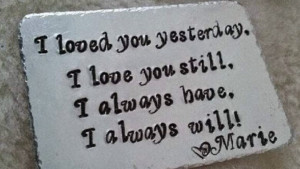 I loved you yesterday,
I love you still,
I always have,
I always will!
Marie